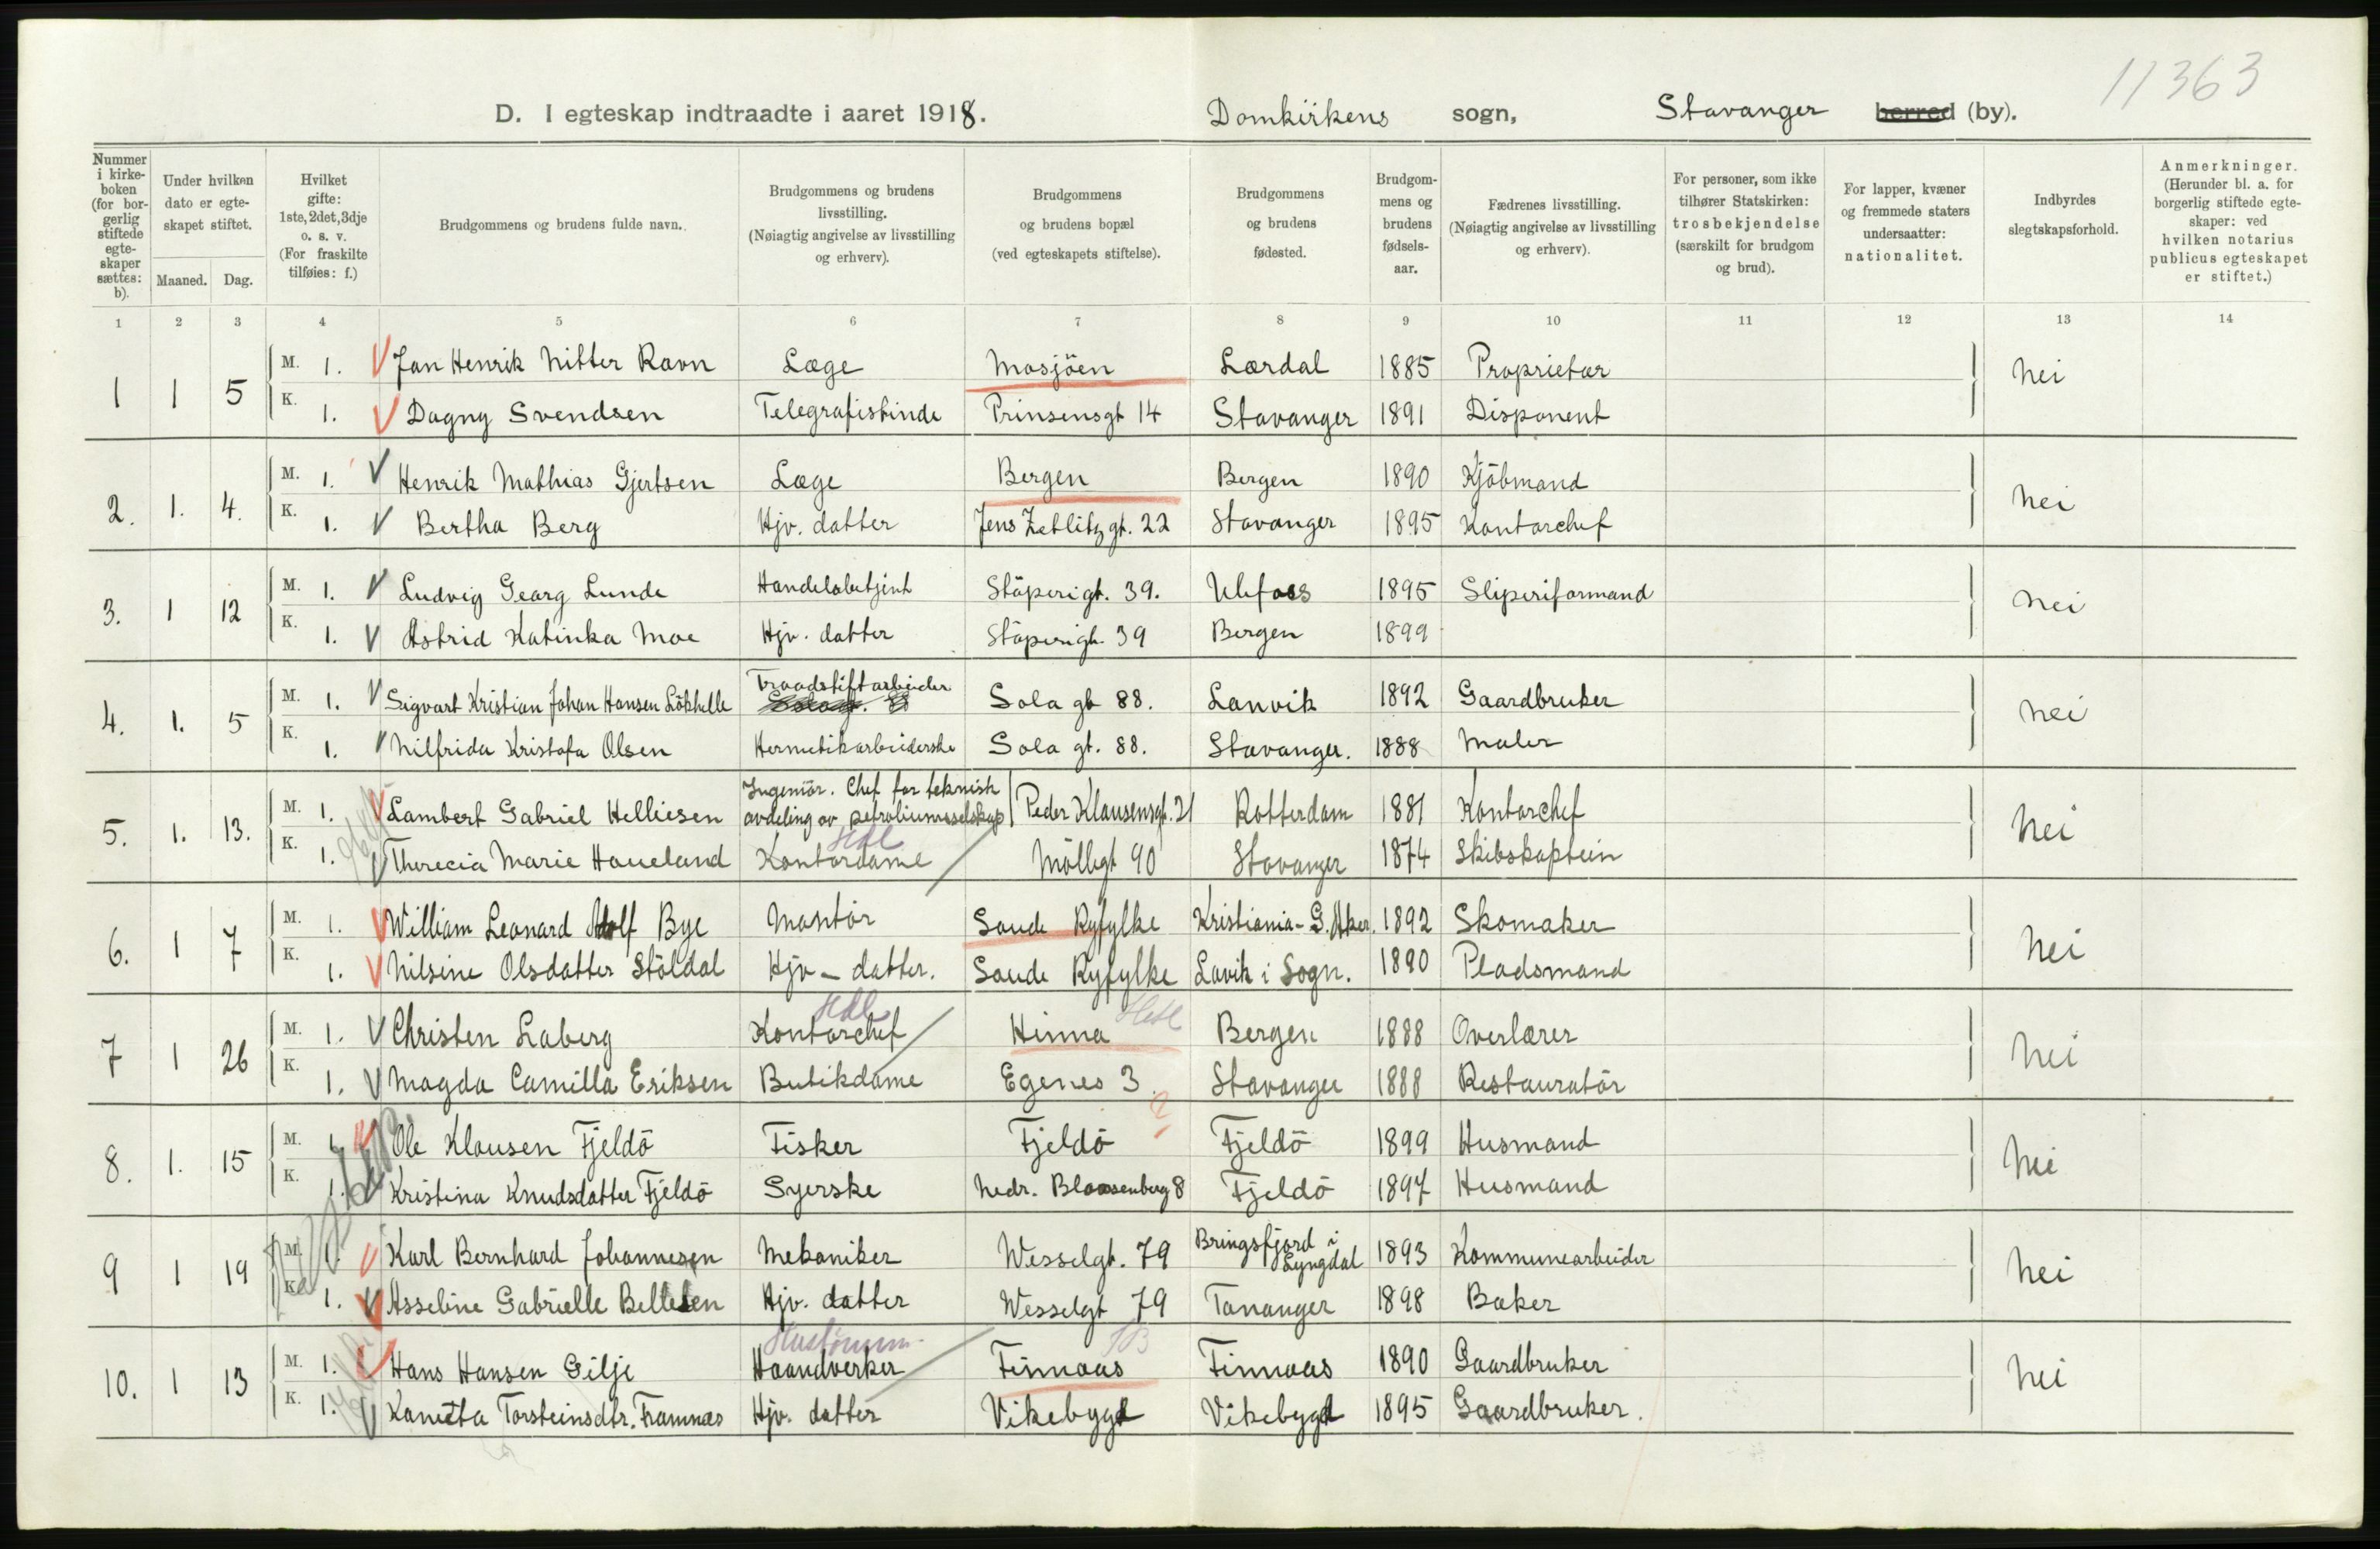 11363
D. I egteskap indtraadte i aaret 1918. Domkirkens sogn, Stavanger herred (by).
Nummer i kirke-boken (for bor-gerlig stiftede egte-skaper sættes: b).
Under hvilken dato er egte-skapet stiftet.
Maaned. Dag.
Hvilket gifte: 1ste, 2det, 3dje o. s. v. (For fraskilte tilføies: f.)
Brudgommens og brudens fulde navn.
Brudgommens og brudens livsstilling. (Nøiagtig angivelse av livsstilling og erhverv).
Brudgommens og brudens bopæl (ved egteskapets stiftelse).
Brudgommens og brudens fødested.
Brudgom-mens og brudens fødsels-aar.
Fædrenes livsstilling. (Nøiagtig angivelse av livsstilling og erhverv).
For personer, som ikke tilhører Statskirken: trosbekjendelse (særskilt for brudgom og brud).
For lapper, kvæner og fremmede staters undersaatter: nationalitet.
Indbyrdes slegtskapsforhold.
Anmerkninger. (Herunder bl. a. for borgerlig stiftede egte-skaper: ved hvilken notarius publicus egteskapet er stiftet.)
1 2 3 4 5 6 7 8 9 10 11 12 13 14
1 1 5 M. 1. Jan Henrik Nitter Ravn Læge Mosjöen Lærdal 1885 Proprietær nei
K. 1. Dagny Svendsen Telegrafistinde Prinsensgt 14 Stavanger 1891 Disponent
2. 1. 4. M. 1. Henrik Mathias Gjertsen Læge Bergen Bergen 1890 Kjöbmand nei
K. 1. Bertha Berg Hjv. datter Jens Zetlitz gt. 22 Stavanger 1895 Kontorchef
3. 1 12 M. 1. Ludvig Georg Lunde Handelsbetjent Stöperigt. 39. Ulefoss 1895 Sliperiformand nei
K. 1. Astrid Katinka Moe Hjv. datter Stöperigt. 39 Bergen 1899
4. 1. 5 M. 1. Sigvart Kristian Johan Hansen Lökhelle Traadstiftarbeider Sola gt 88. Lanvik 1892 Gaardbruker nei
K. 1. Nilfrida Kristofa Olsen Hermetikarbeiderske Sola gt. 88. Stavanger. 1888 Maler
5. 1. 13. M. 1. Lambert Gabriel Helliesen Ingeniör. Chef for teknisk avdeling av petroliumsselskap Peder Klausensgt. 21 Rotterdam 1881 Kontorchef nei
K. 1. Therecia Marie Haueland Kontordame Möllegt 90 Stavanger 1874 Skibskaptein
6. 1 7 M. 1. William Leonard Adolf Bye Montör Saude Ryfylke Kristiania - G. Aker. 1892 Skomaker nei
K. 1. Nilsine Olsdatter Stöldal Hjv - datter. Saude Ryfylke Lavik i Sogn. 1890 Pladsmand
7 1 26 M. 1. Christen Laberg Kontorchef Hinna Bergen 1888 Overlærer nei
K. 1. Magda Camilla Eriksen Butikdame Egenes 3 Stavanger 1888 Restauratör
8. 1. 15 M. 1. Ole Klausen Fjeldö Fisker Fjeldö Fjeldö 1899 Husmand nei
K. 1. Kristina Knudsdatter Fjeldö Syerske Nedr. Blaasenberg 8 Fjeldö 1897 Husmand
9 1 19 M. 1. Karl Bernhard Johannesen Mekaniker Wesselgt. 79 Bringsfjord i Lyngdal 1893 Kommunearbeider nei
K. 1. Asseline Gabrielle Bellesen Hjv. datter Wesselgt 79 Tananger 1898 Baker
10. 1 13 M. 1. Hans Hansen Gilje Haandverker Finnaas Finnaas 1890 Gaardbruker nei
K. 1. Torsteinsdtr. Framnæs Hjv. datter Vikebygd Vikebygd 1895 Gaardbruker.